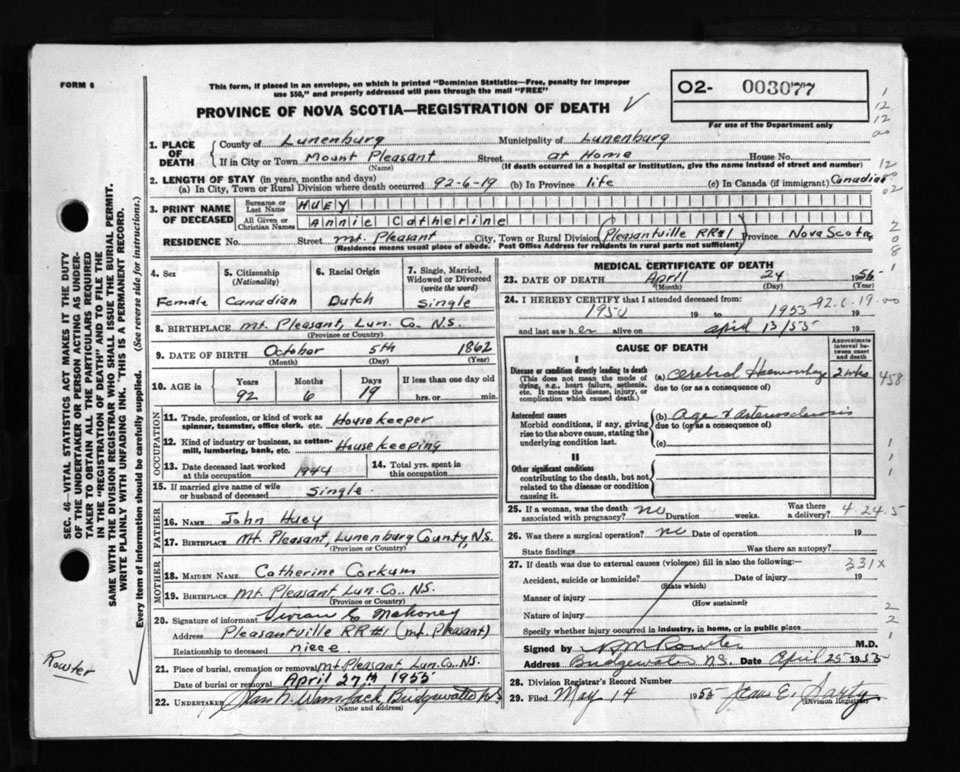 FORM 6
This form, if placed in an envelope, on which is printed "Dominion Statistics—Free, penalty for improper
use $50," and properly addressed will pass through the mail "FREE"
PROVINCE OF NOVA SCOTIA—REGISTRATION OF DEATH
O2- 003077
For use of the Department only
1. PLACE OF DEATH
County of Lunenburg Municipality of Lunenburg
If in City or Town Mount Pleasant Street at Home House No.
(Name) (If death occurred in a hospital or institution, give the name instead of street and number)
2. LENGTH OF STAY (in years, months and days)
(a) In City, Town or Rural Division where death occurred 92-6-19 (b) In Province life (c) In Canada (if immigrant) Canadian
3. PRINT NAME OF DECEASED
Surname or Last Name HUEY
All Given or Christian Names Annie Catherine
RESIDENCE No. Street Mt. Pleasant City, Town or Rural Division Pleasantville RR#1 Province Nova Scotia
(Residence means usual place of abode. Post Office Address for residents in rural parts not sufficient)
4. Sex
Female
5. Citizenship (Nationality)
Canadian
6. Racial Origin
Dutch
7. Single, Married, Widowed or Divorced (write the word)
Single
8. BIRTHPLACE Mt. Pleasant, Lun. Co. N.S.
(Province or Country)
9. DATE OF BIRTH October 5th 1862
(Month) (Day) (Year)
10. AGE in
Years Months Days If less than one day old
92 6 19 hrs. or min.
OCCUPATION
11. Trade, profession, or kind of work as spinner, teamster, office clerk, etc. Housekeeper
12. Kind of industry or business, as cotton-mill, lumbering, bank, etc. Housekeeping
13. Date deceased last worked at this occupation 1944
14. Total yrs. spent in this occupation
15. If married give name of wife or husband of deceased Single
FATHER
16. NAME John Huey
17. BIRTHPLACE Mt. Pleasant, Lunenburg County, N.S.
(Province or Country)
MOTHER
18. MAIDEN NAME Catherine Corkum
19. BIRTHPLACE Mt Pleasant Lun. Co., N.S.
(Province or Country)
20. Signature of informant Vivian E Mahoney
Address Pleasantville RR#1 (Mt. Pleasant)
Relationship to deceased niece
21. Place of burial, cremation or removal Mt Pleasant Lun. Co. N.S.
Date of burial or removal April 27th 1955
22. UNDERTAKER Bridgewater N.S.
(Name and address)
MEDICAL CERTIFICATE OF DEATH
23. DATE OF DEATH April 24 1955
(Month) (Day) (Year)
24. I HEREBY CERTIFY that I attended deceased from:
1950 19 to 1955 19
92-6-19-00
and last saw her alive on April 13/55 19
CAUSE OF DEATH
Approximate interval between onset and death
I
Disease or condition directly leading to death
(This does not mean the mode of dying, e.g., heart failure, asthenia, etc. It means the disease, injury, or complication which caused death.)
(a) Cerebral Haemorrhage 2 wks
due to (or as a consequence of)
Antecedent causes
Morbid conditions, if any, giving rise to the above cause, stating the underlying condition last.
(b) Age & arteriosclerosis
due to (or as a consequence of)
(c)
II
Other significant conditions
contributing to the death, but not related to the disease or condition causing it.
458
25. If a woman, was the death associated with pregnancy? no Duration weeks. Was there a delivery?
4-24-5
26. Was there a surgical operation? no Date of operation 19
State findings Was there an autopsy?
27. If death was due to external causes (violence) fill in also the following:—
331X
Accident, suicide or homicide? Date of injury 19
(State which)
Manner of injury
(How sustained)
Nature of injury
Specify whether injury occurred in industry, in home, or in public place
Signed by M.D.
Address Bridgewater N.S. Date April 25 1955
28. Division Registrar's Record Number
29. Filed May 14 1955 Jean E. Sarty
(Division Registrar)
SEC. 46—VITAL STATISTICS ACT MAKES IT THE DUTY
OF THE UNDERTAKER OR PERSON ACTING AS UNDER-
TAKER TO OBTAIN ALL THE PARTICULARS REQUIRED
IN THE "REGISTRATION OF DEATH" AND TO FILE THE
SAME WITH THE DIVISION REGISTRAR WHO SHALL ISSUE THE BURIAL PERMIT.
WRITE PLAINLY WITH UNFADING INK. THIS IS A PERMANENT RECORD.
Every item of information should be carefully supplied. (See reverse side for instructions.)